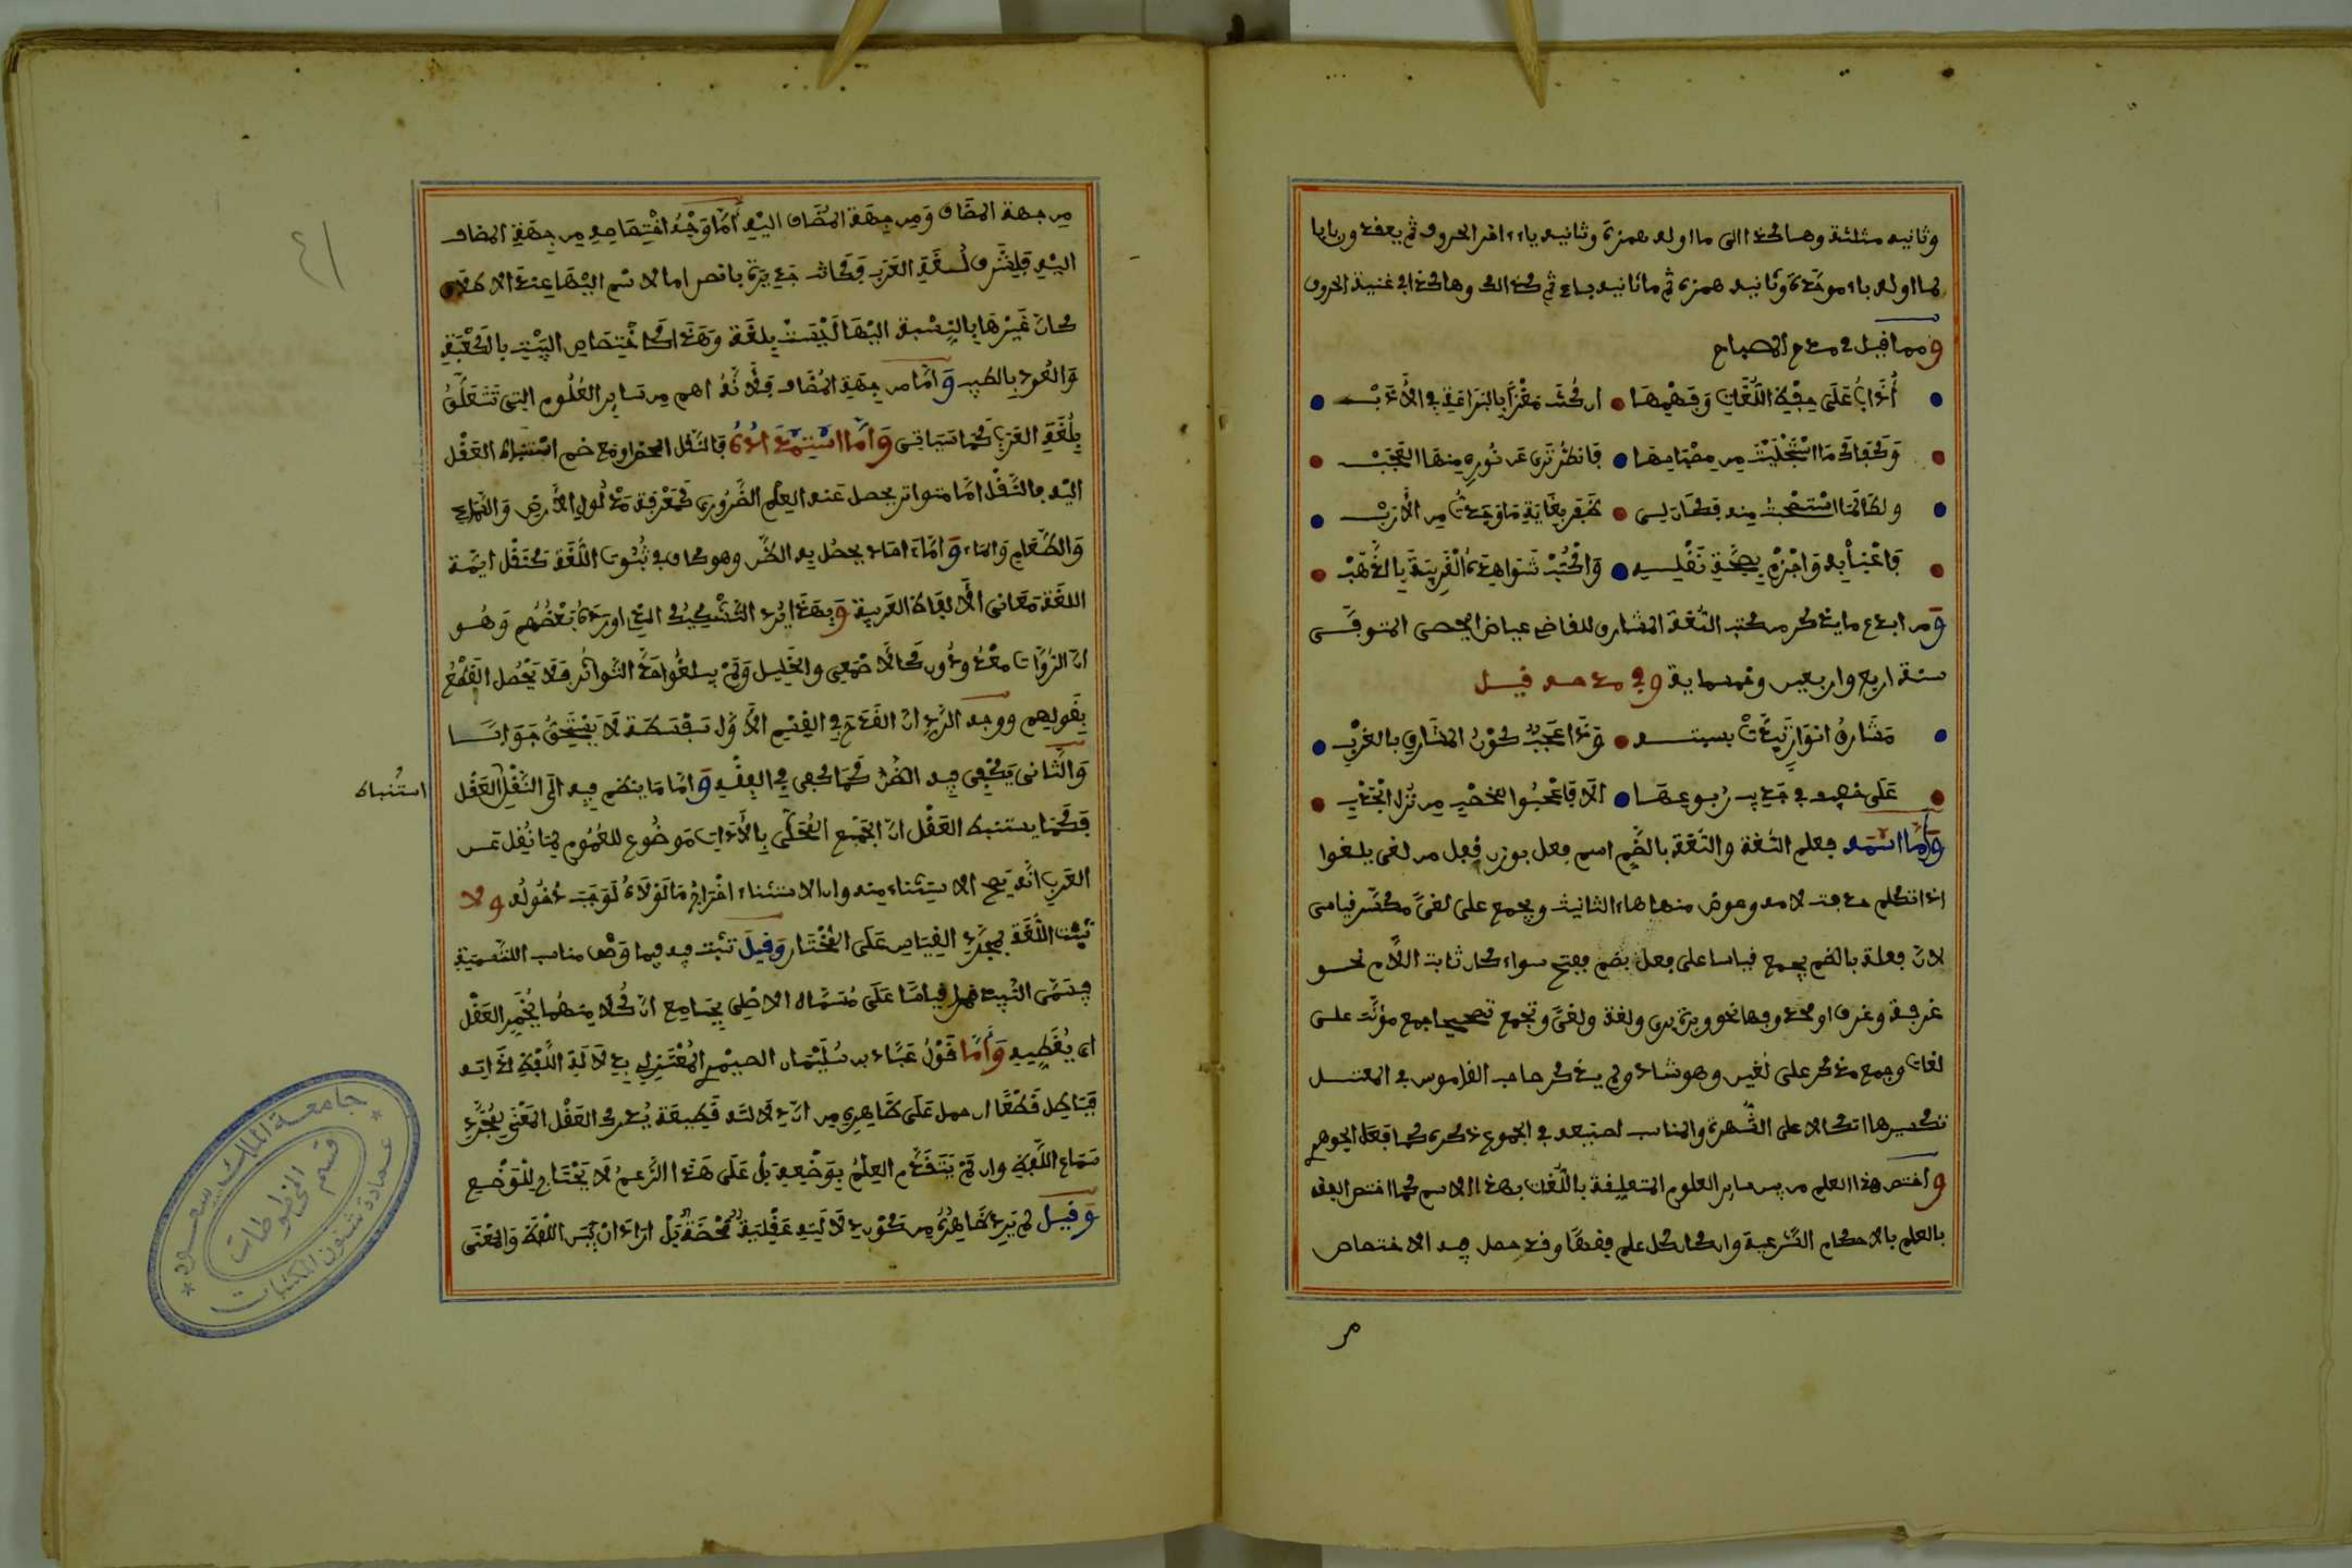 وثانيه مثلثة وهاكذا الى ما اوله همزة وثانيه ياء اخر الحروف ثم يعقد وربابا
لما اوله باء موحدة وثانيه همزة ثم ما ثانيه باء ثم كذالك وهاكذا الى غنية الحروف
ومما قيل في مدح المصباح
أذاب على حفظ اللغات وفهمها ان كنت مغرا بالبراعة في الأدب
وكفاك ما استجليت من مصباحها فانظر ترى عن نوره منها العجب
ولطالما استصحبت منه فكان لي نفر بغاية ما وجدت من الأرب
فاعبأ به واجزم بصحة نقله واكتب شواهده الغريبة بالذهب
ومن ابدع ما يذكر من كتب اللغة المشارق للقاضي عياض اليحصبي المتوفى
سنة اربع واربعين وخمسماية وفي مدحه قيل
مشارق انوار تبدت بسبتة وذا عجب كون المشارق بالغرب
على خصبه في جدب ربوعها الا فاعجبوا للخصب من نزل الجدب
وأما اسمه فعلم اللغة واللغة بالضم اسم فعل بوزن فعل من لغى يلغوا
اذا تكلم حذفت لامه وعوض منها هاء التانيث ويجمع على لغى مكسر قياسي
لان فعلة بالضم يجمع قياسا على فعل بضم ففتح سواء كان ثابت اللام نحو
غرفة وغرف او محذوفها نحو وبرة برى ولغة ولغى وتجمع تصحيحا جمع مؤنث على
لغات وجمع مذكر على لغين وهو شاذ ولم يذكر صاحب القاموس في المعتل
تكسيرها اتكالا على الشهرة والمناسب لصنيعه في الجموع ذكره كما فعل الجوهر
واختص هذا العلم من بين ساير العلوم المتعلقة باللغات بهذا الاسم كما اختص الفقه
بالعلم بالاحكام الشرعية وان كان كل علم فقها وقد حصل فيه الاختصاص
من
من جهة المضاف ومن جهة المضاف اليه أما وجه اختصاصه من جهة المضاف
اليه فلشرف لسغة العرب فكانت جديرة بانصر اما لاسم اليها عند الاطلاق
كان غيرها بالنسبة اليها ليست بلغة وهذا كاختصاص البيت بالكعبة
والعود بالطيب وأما من جهة المضاف فلأنه اهم من ساير العلوم التي تتعلق
بلغة العرب كما سياتي وأما استمداده فالنقل المحض او مع ضم استنباط العقل
اليه فالنقل اما متواتر يحصل عنه العلم الضروري كمعرفة مدلول الأرض والسماء
والطعام والماء وأما ءاحاد يحصل به الظن وهو كاف في ثبوت اللغة كنقل ايمة
اللغة معاني الألفاظ العربية وبهذا يرد التشكيك الذي اورده بعضهم وهو
ان الرواة معدودون كالاصمعي والخليل ولم يبلغوا حد التواتر فلا يحصل القطع
بقولهم ووجه الرد ان القدح في القسم الأول سفسطة لا يستحق جوابا
والثاني يكفي فيه الظن كما كفى في الفقه وأما ما ينضم فيه الى النقل العقل
استنباط
فكما يستنبط العقل ان الجمع المحلى بالأداة موضوع للعموم لما نقل عن
العرب انه يصح الاستثناء منه وان الاستثناء اخراج ما لولاه لوجب دخوله ولا
تثبت اللغة بمجرد القياس على المختار وقيل تثبت فيه فيما وصف مناسب للتسمية
فيسمى النبيذ خمرا قياسا على مسماه الاصلي بجامع ان كلا منهما يخمر العقل
اي يغطيه وأما قول عباد بن سليمان الصيمري المعتزلي بدلالة اللفظ لذاته
فباطل قطعا ان حمل على ظاهره من ان دلالته طبيعة يدرك العقل المعنى بمجرد
سماع اللفظ وان لم يتقدم العلم بوضعه بل على هذا الزعم لا يحتاج للوضع
وقيل لم يرد ظاهره من كون دلاليه عقلية محضة بل اراد ان بين اللفظ والمعنى
٤١
جامعة الملك سعود
عمادة شئون المكتبات
قسم المخطوطات